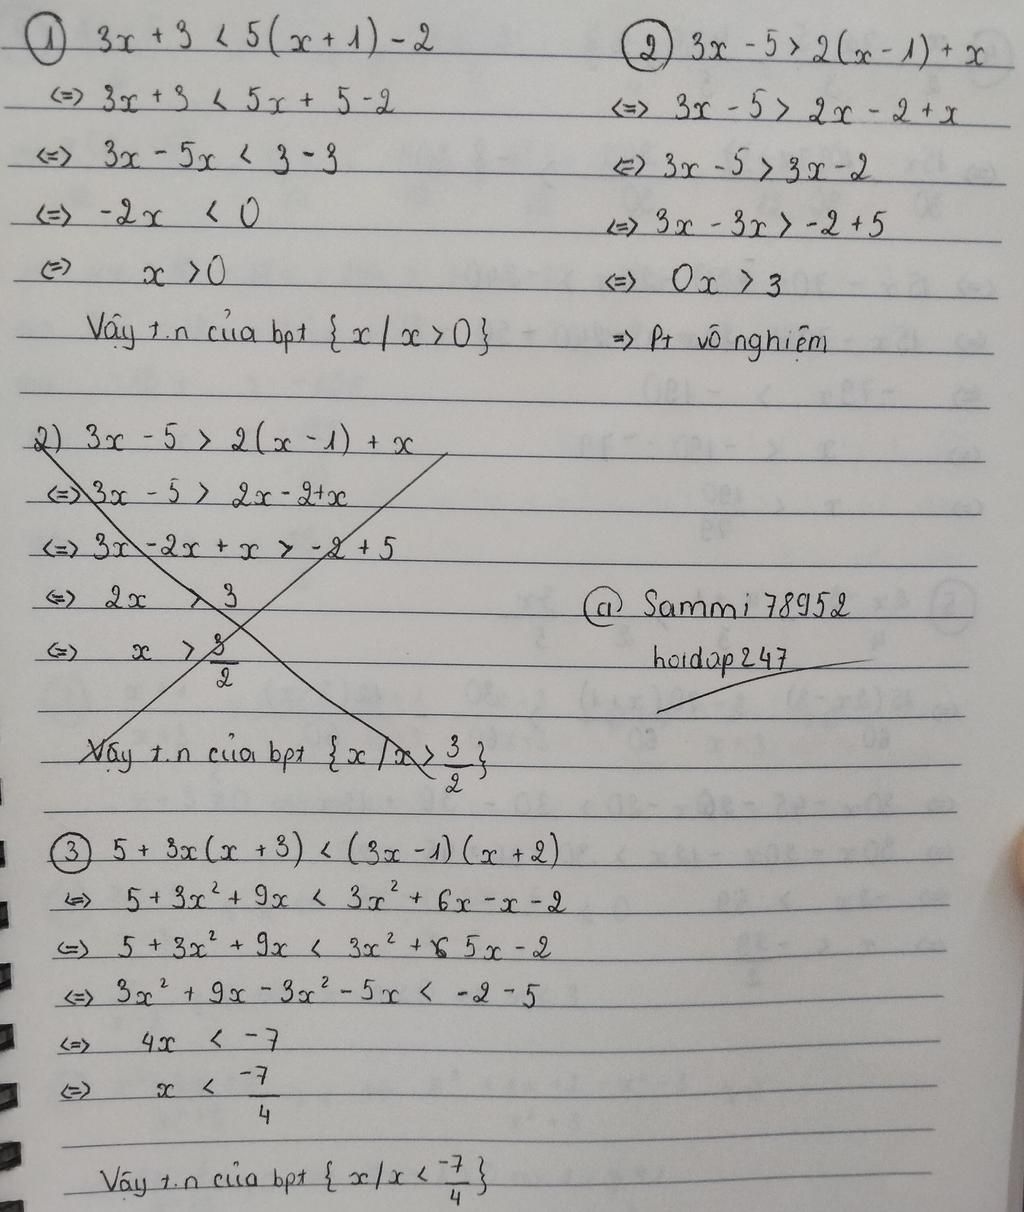 ① 3x + 3 < 5(x + 1) - 2
<=> 3x + 3 < 5x + 5 - 2
<=> 3x - 5x < 3 - 3
<=> -2x < 0
<=> x > 0
Vậy t.n của bpt {x / x > 0}
② 3x - 5 > 2(x - 1) + x
<=> 3x - 5 > 2x - 2 + x
<=> 3x - 5 > 3x - 2
<=> 3x - 3x > -2 + 5
<=> 0x > 3
=> Pt vô nghiệm
2) 3x - 5 > 2(x - 1) + x
<=> 3x - 5 > 2x - 2 + x
<=> 3x - 2x + x > -2 + 5
<=> 2x > 3
<=> x > 3/2
Vậy t.n của bpt {x / x > 3/2}
@ Sammi 78952
hoidap247
③ 5 + 3x(x + 3) < (3x - 1)(x + 2)
<=> 5 + 3x² + 9x < 3x² + 6x - x - 2
<=> 5 + 3x² + 9x < 3x² + 5x - 2
<=> 3x² + 9x - 3x² - 5x < -2 - 5
<=> 4x < -7
<=> x < -7/4
Vậy t.n của bpt {x / x < -7/4}